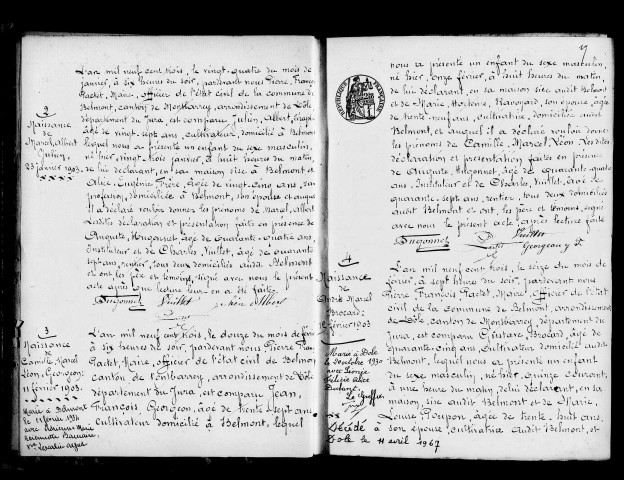 2
Naissance
de
Marcel, Albert
Julien,
23 janvier 1903.
L'an mil neuf cent trois, le vingt-quatre du mois de
janvier, à six heures du soir, pardevant nous Pierre, François
Pactet, Maire, officier de l'état civil de la commune de
Belmont, canton de Montbarrey, arrondissement de Dôle
département du Jura, est comparu Julien, Albert,
âgé de vingt-sept ans, cultivateur, domicilié à Belmont
lequel nous a présenté un enfant du sexe masculin,
né hier, vingt trois janvier, à huit heures du matin,
de lui déclarant, en sa maison sise à Belmont et
Alice, Eugénie Frère, âgée de vingt-cinq ans, sans
profession, domiciliée à Belmont, son épouse et auquel
il a déclaré vouloir donner les prénoms de Marcel, Albert
Lesdites déclaration et présentation faites en présence
de Auguste, Hugonnet, âgé de quarante-quatre ans,
Instituteur et de Charles Vuillet, âgé de quarante
sept ans, rentier, tous deux domiciliés audit Belmont
et ont les père et témoins, signé avec nous le présent
acte après que lecture leur en a été faite.
Hugonnet Vuillet Julien Albert
3
Naissance
de
Camille, Marcel
Léon, Georgeon;
11 février 1903.
Marié à Belmont
le 11 février 1931
avec
L'an mil neuf cent trois, le douze du mois de février
à six heures du soir, pardevant nous Pierre François
Pactet, Maire, officier de l'état civil de Belmont
canton de Montbarrey, arrondissement de Dôle
département du Jura, est comparu Jean,
François, Georgeon, âgé de trente-sept ans,
cultivateur domicilié à Belmont, lequel
nous a présenté un enfant du sexe masculin,
né hier, onze février, à huit heures du matin,
de lui déclarant, en sa maison sise audit Belmont
et de Marie, Hortense, Ravoyard, son épouse, âgée
de trente-neuf ans, cultivatrice, domiciliée audit
Belmont, et auquel il a déclaré vouloir donner
les prénoms de Camille, Marcel Léon. Lesdites
déclaration et présentation faites en présence
de Auguste, Hugonnet, âgé de quarante quatre
ans, Instituteur et de Charles, Vuillet, âgé de
quarante-sept ans, rentier, tous deux domiciliés
audit Belmont et ont, les père et témoins, signé
avec nous le présent acte après lecture faite
Hugonnet Vuillet
Georgeon
4
Naissance
de
André Marcel
Brocard;
février 1903
Marié à Dole
le 30 octobre 1930
avec
Décédé à
Dole le 11 avril 1967
L'an mil neuf cent trois, le seize du mois de
février, à sept heures du soir, pardevant nous
Pierre François Pactet, Maire, officier de l'état
civil de la Commune de Belmont, arrondissement
de Dôle, canton de Montbarrey, département du
Jura, est comparu Gustave, Brocard, âgé de
quarante-cinq ans, cultivateur domicilié audit
Belmont, lequel nous a présenté un enfant
du sexe masculin, né hier, quinze courant,
à une heure du matin, de lui déclarant, en sa
maison, sise audit Belmont et de Marie,
Louise Poupon, âgée de trente-huit ans,
son épouse, cultivatrice audit Belmont, et